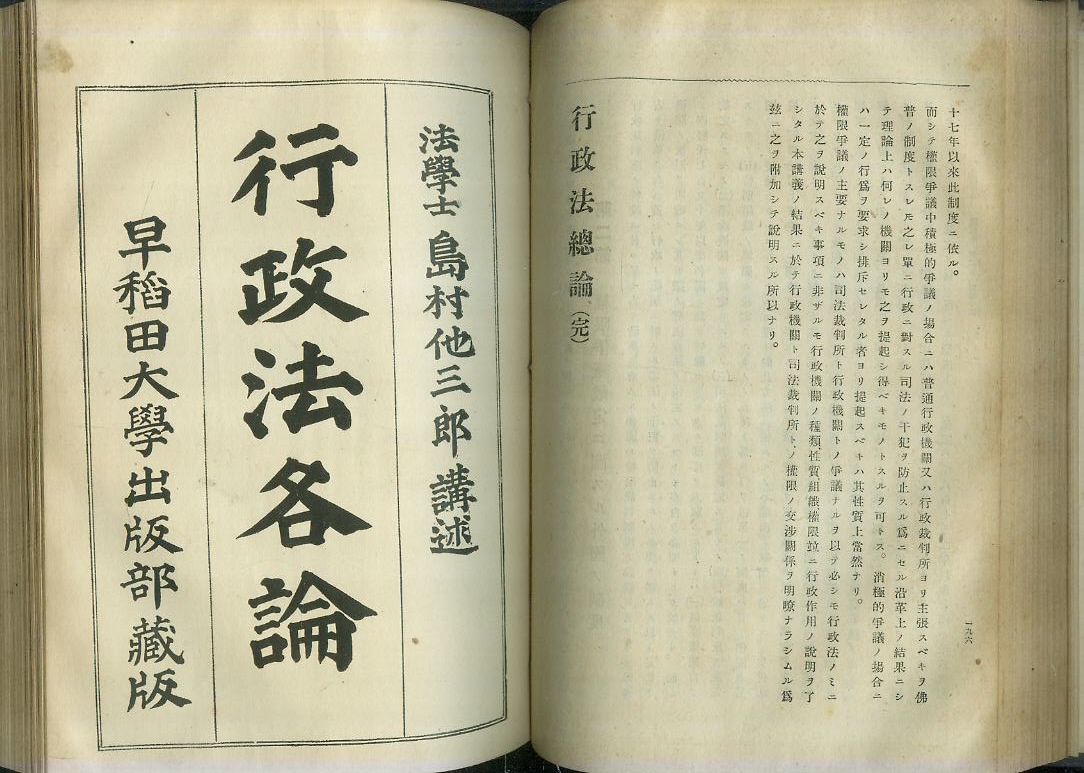 十七年以來此制度ニ依ル。
而シテ權限爭議中積極的爭議ノ場合ニハ普通行政機關又ハ行政裁判所ヨリ主張スベキヲ佛
普ノ制度トスレ𪜈之レ單ニ行政ニ對スル司法ノ干犯ヲ防止スル爲ニセル沿革上ノ結果ニシ
テ理論上ハ何レノ機關ヨリモ之ヲ提起シ得ベキモノトスルヲ可トス。消極的爭議ノ場合ニ
ハ一定ノ行爲ヲ要求シ排斥セレタル者ヨリ提起スベキハ其性質上當然ナリ。
權限爭議ノ主要ナルモノハ司法裁判所ト行政機關トノ爭議ナルヲ以テ必シモ行政法ノミニ
於テ之ヲ說明スベキ事項ニ非ザルモ行政機關ノ種類、性質組織權限並ニ行政作用ノ說明ヲ了
シタル本講義ノ結果ニ於テ行政機關ト司法裁判所ト、ノ權限ノ交涉關係ヲ明瞭ナラシムル爲
玆ニ之ヲ附加シテ說明スル所以ナリ。
行政法總論(完)
一九六
法學士 島村他三郎 講述
行政法各論
早稻田大學出版部藏版